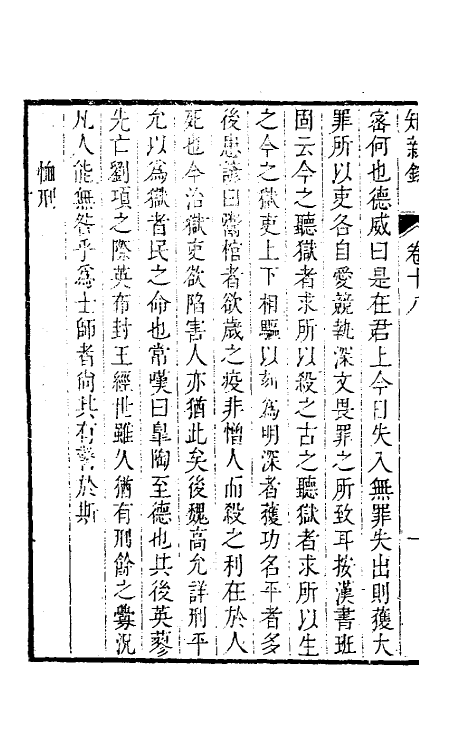 知新錄 卷十八 一
密何也德威曰是在君上今日失入無罪失出則獲大
罪所以吏各自愛競執深文畏罪之所致耳按漢書班
固云今之聽獄者求所以殺之古之聽獄者求所以生
之今之獄吏上下相驅以刻為明深者獲功名平者多
後患諺曰鬻棺者欲歲之疫非憎人而殺之利在於人
死也今治獄吏欲陷害人亦猶此矣後魏高允詳刑平
允以為獄者民之命也常嘆曰臯陶至德也其後英蓼
先亡劉項之際英布封王經世雖久猶有刑餘之釁況
凡人能無咎乎為士師者尚其有警於斯
恤刑